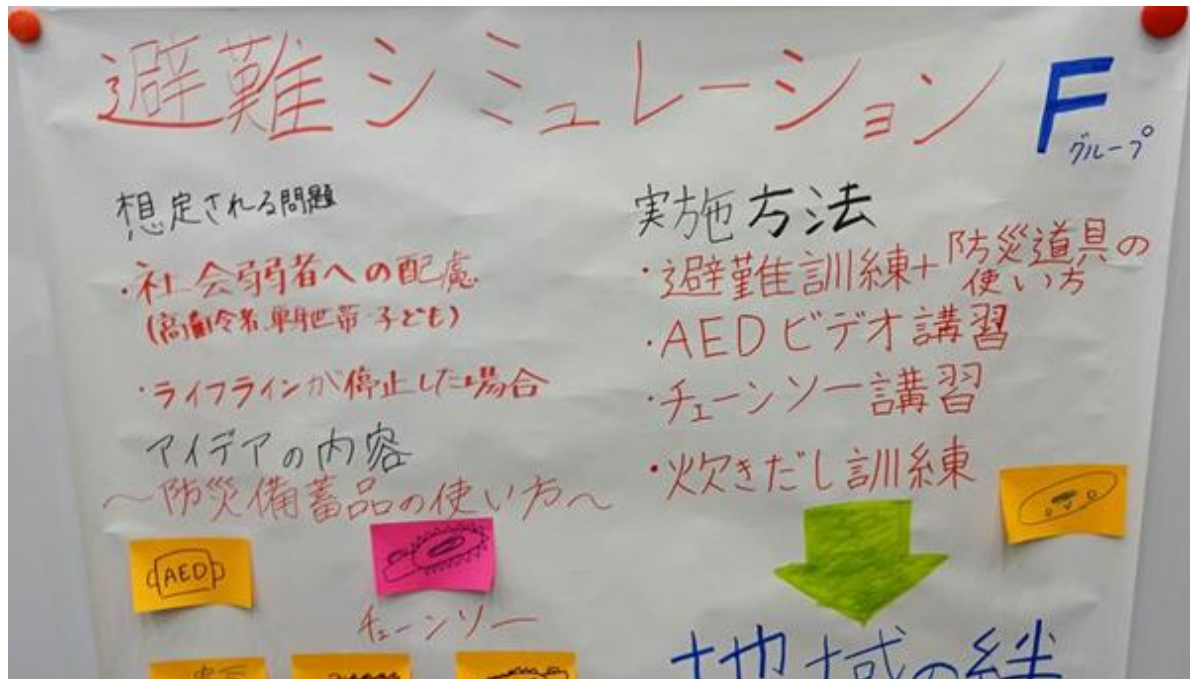 避難シミュレーション F
グループ
想定される問題
・社会弱者への配慮
(高齢者、単身世帯 子ども)
・ライフラインが停止した場合
アイデアの内容
～防災備蓄品の使い方～
AED
チェーンソー
実施方法
・避難訓練+防災道具の
使い方
・AEDビデオ講習
・チェーンソー講習
・炊きだし訓練
地域の絆